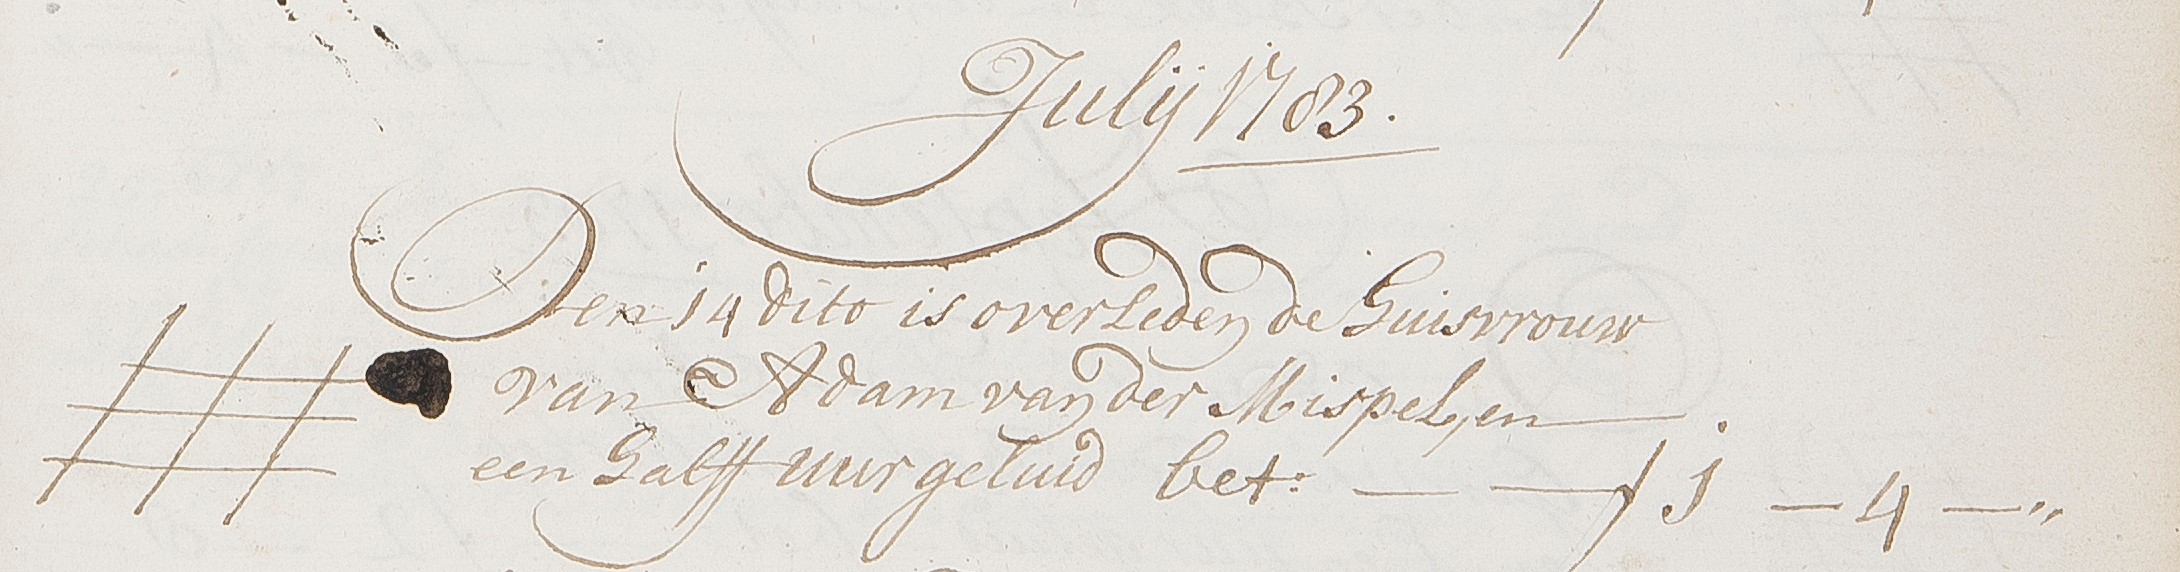 Julij 1783.
Den 14 dito is overleden de Huisvrouw
van Adam van der Mispel, en
een halff uur geluid bet: — — ƒ 1 — 4 — "